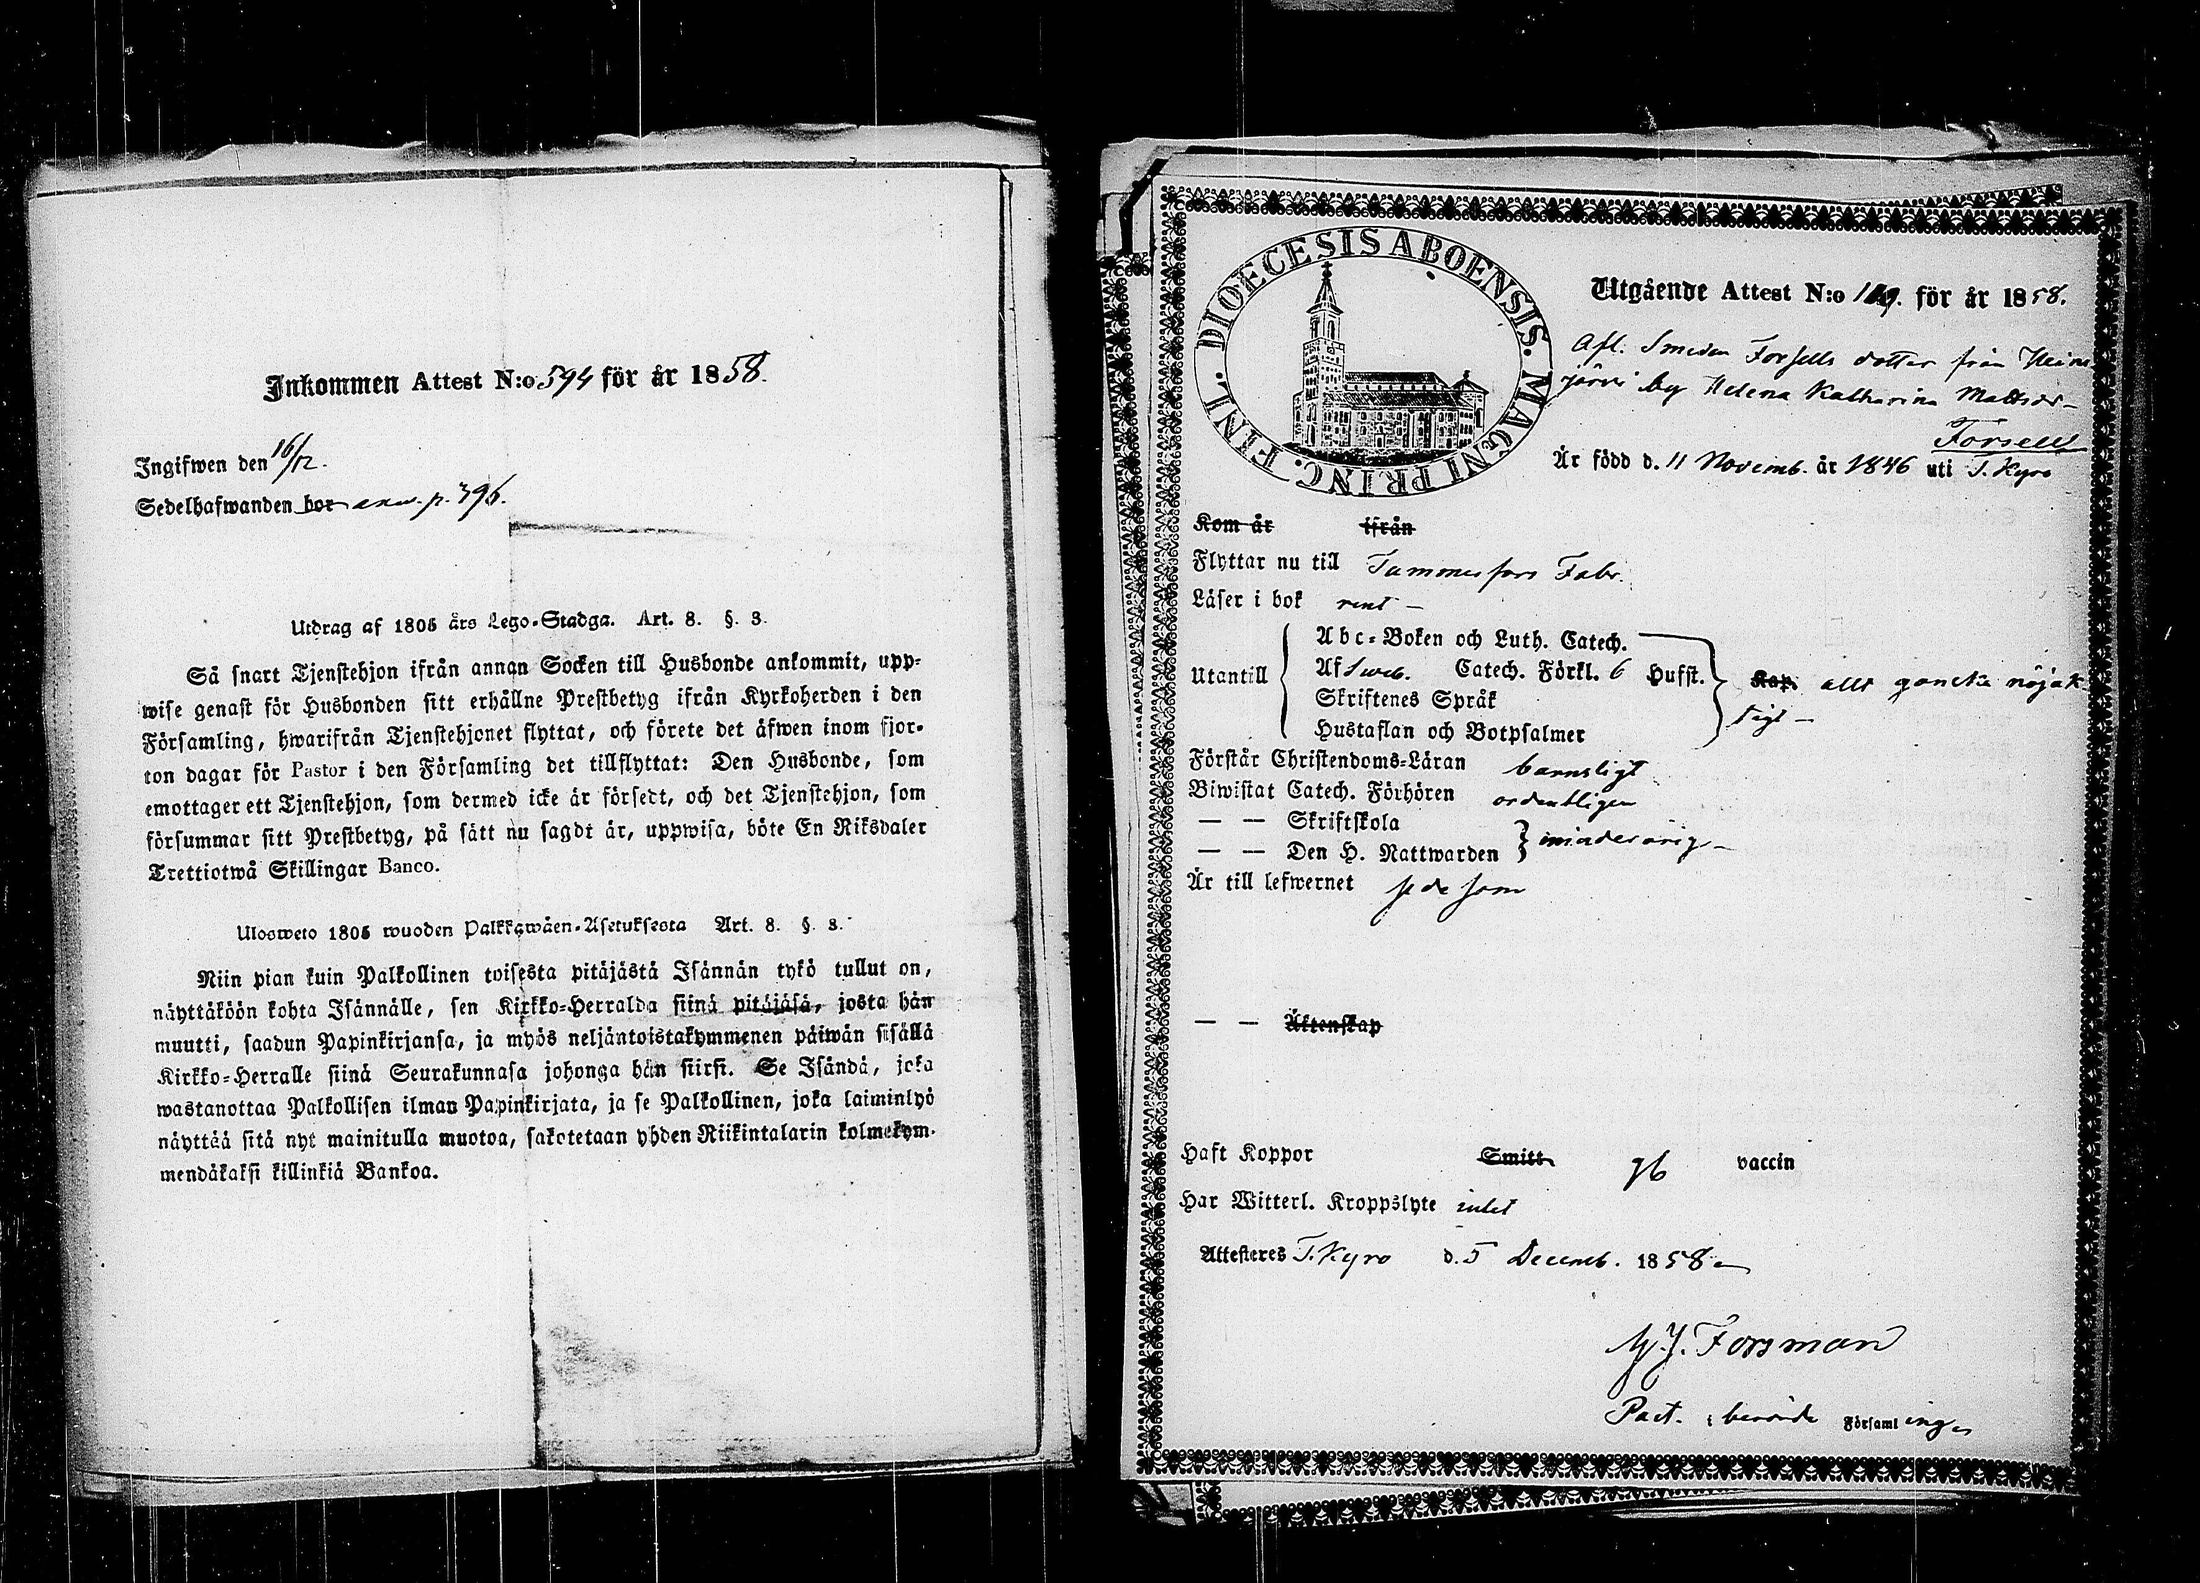 Inkommen Attest N:o 594 för år 1858.
Ingifwen den 16/12.
Sedelhafwanden bor anw. p. 396.
Utdrag af 1805 års Lego-Stadga. Art. 8. §. 3.
Så snart Tjenstehjon ifrån annan Socken till Husbonde ankommit, upp-
wise genast för Husbonden sitt erhållne Prestbetyg ifrån Kyrkoherden i den
Församling, hwarifrån Tjenstehjonet flyttat, och förete det äfwen inom fjor-
ton dagar för Pastor i den Församling det tillflyttat: Den Husbonde, som
emottager ett Tjenstehjon, som dermed icke är försedt, och det Tjenstehjon, som
försummar sitt Prestbetyg, på sätt nu sagdt är, uppwisa, böte En Riksdaler
Trettiotwå Skillingar Banco.
Ulosweto 1805 wuoden Palkkawäen-Asetuksesta Art. 8. §. 3.
Niin pian kuin Palkollinen toisesta pitäjästä Isännän tykö tullut on,
näyttäköön kohta Isännälle, sen Kirkko-Herralda siinä pitäjäsä, josta hän
muutti, saadun Papinkirjansa, ja myös neljäntoistakymmenen päiwän sisällä
Kirkko-Herralle siinä Seurakunnasa johonga hän siirsi. Se Isändä, joka
wastanottaa Palkollisen ilman Papinkirjata, ja se Palkollinen, joka laiminlyö
näyttää sitä nyt mainitulla muotoa, sakotetaan yhden Riikintalarin kolmekym-
mendäkaksi killinkiä Bankoa.
DIOECESIS ABOENSIS. MAGNI PRINC. FINL.
Utgående Attest N:o 119. för år 1858.
Afl. Smeden Forsells dotter från Heina
järvi by Helena Katharina Mattsdr-
Forsell
Är född d. 11 Novemb. år 1846 uti T. Kyro
Kom år ifrån
Flyttar nu till Tammerfors Fabr.
Läser i bok rent –
Abc-Boken och Luth. Catech.
Utantill Af Sweb. Catech. Förkl. 6 Hufst. Kap. allt ganska nöjak-
Skriftenes Språk tigt –
Hustaflan och Botpsalmer
Förstår Christendoms-Läran barnsligt
Biwistat Catech. Förhören ordentligen
— — Skriftskola
— — Den H. Nattwarden } minderårig –
Är till lefwernet sedesam
— — Äktenskap
Haft Koppor Smitt. gb vaccin
Har Witterl. Kroppslyte intet
Attesteres T. Kyro d. 5 Decemb. 1858
Forsman
Past. i berörde Församlingen